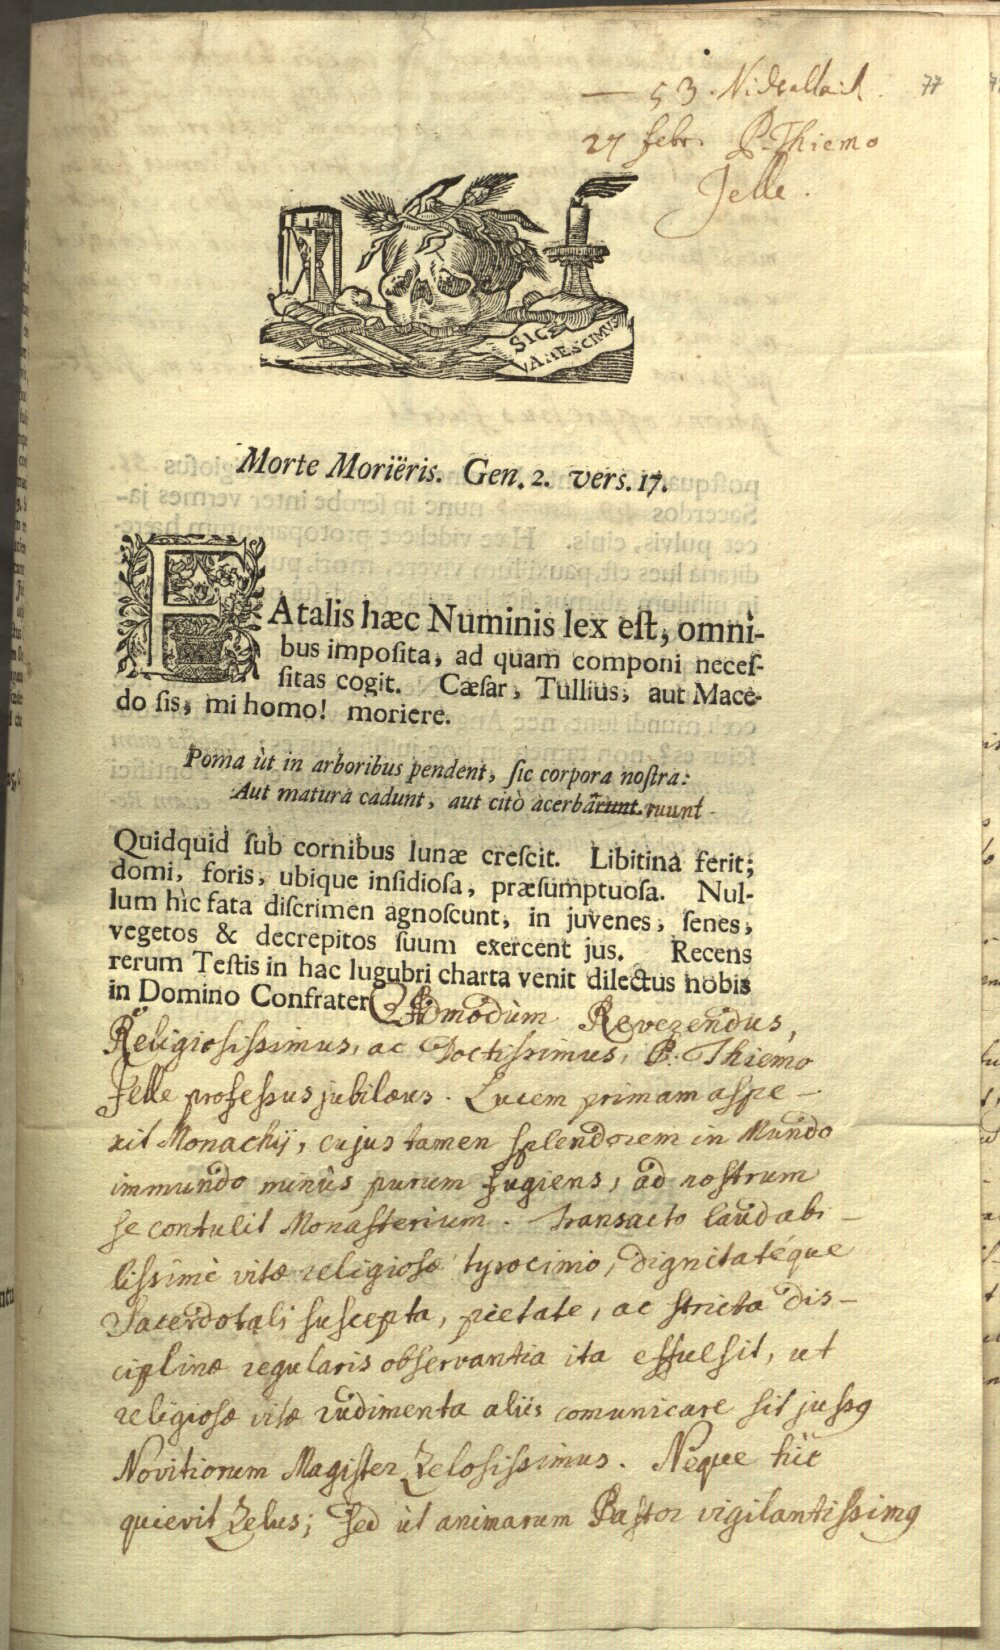 — 53. Nidraltaich
77
27 febr. P. Thiemo
Jelle.
SIC
VANESCIMUS
Morte Moriëris. Gen. 2. vers. 17.
FAtalis hæc Numinis lex eſt, omni-
bus impoſita, ad quam componi neceſ-
ſitas cogit. Cæſar, Tullius, aut Mace-
do ſis, mi homo! moriere.
Poma ùt in arboribus pendent, ſic corpora noſtra:
Aut matura cadunt, aut citò acerba ruunt.
Quidquid ſub cornibus lunæ creſcit. Libitina ferit;
domi, foris, ubique inſidioſa, præſumptuoſa. Nul-
lum hìc fata diſcrimen agnoſcunt, in juvenes, ſenes,
vegetos & decrepitos ſuum exercent jus. Recens
rerum Teſtis in hac lugubri charta venit dilectus nobis
in Domino Confrater Admodùm Reverendus,
Religiosissimus, ac Doctissimus, P. Thiemo
Jelle professus jubilæus. Lucem primam aspe-
xit Monachij, cujus tamen splendorem in Mundo
immundo minùs purum fugiens, ad nostrum
se contulit Monasterium. Transacto laudabi-
lissimè vitæ religiosæ tyrocinio, dignitatéque
Sacerdotali suscepta, pietate, ac stricta dis-
ciplinæ regularis observantia ita effulsit, ut
religiosæ vitæ rudimenta aliis comunicare sit jussꝯ
Novitiorum Magister Zelosissimus. Neque hìc
quievit Zelus; sed ùt animarum Pastor vigilantissimꝯ